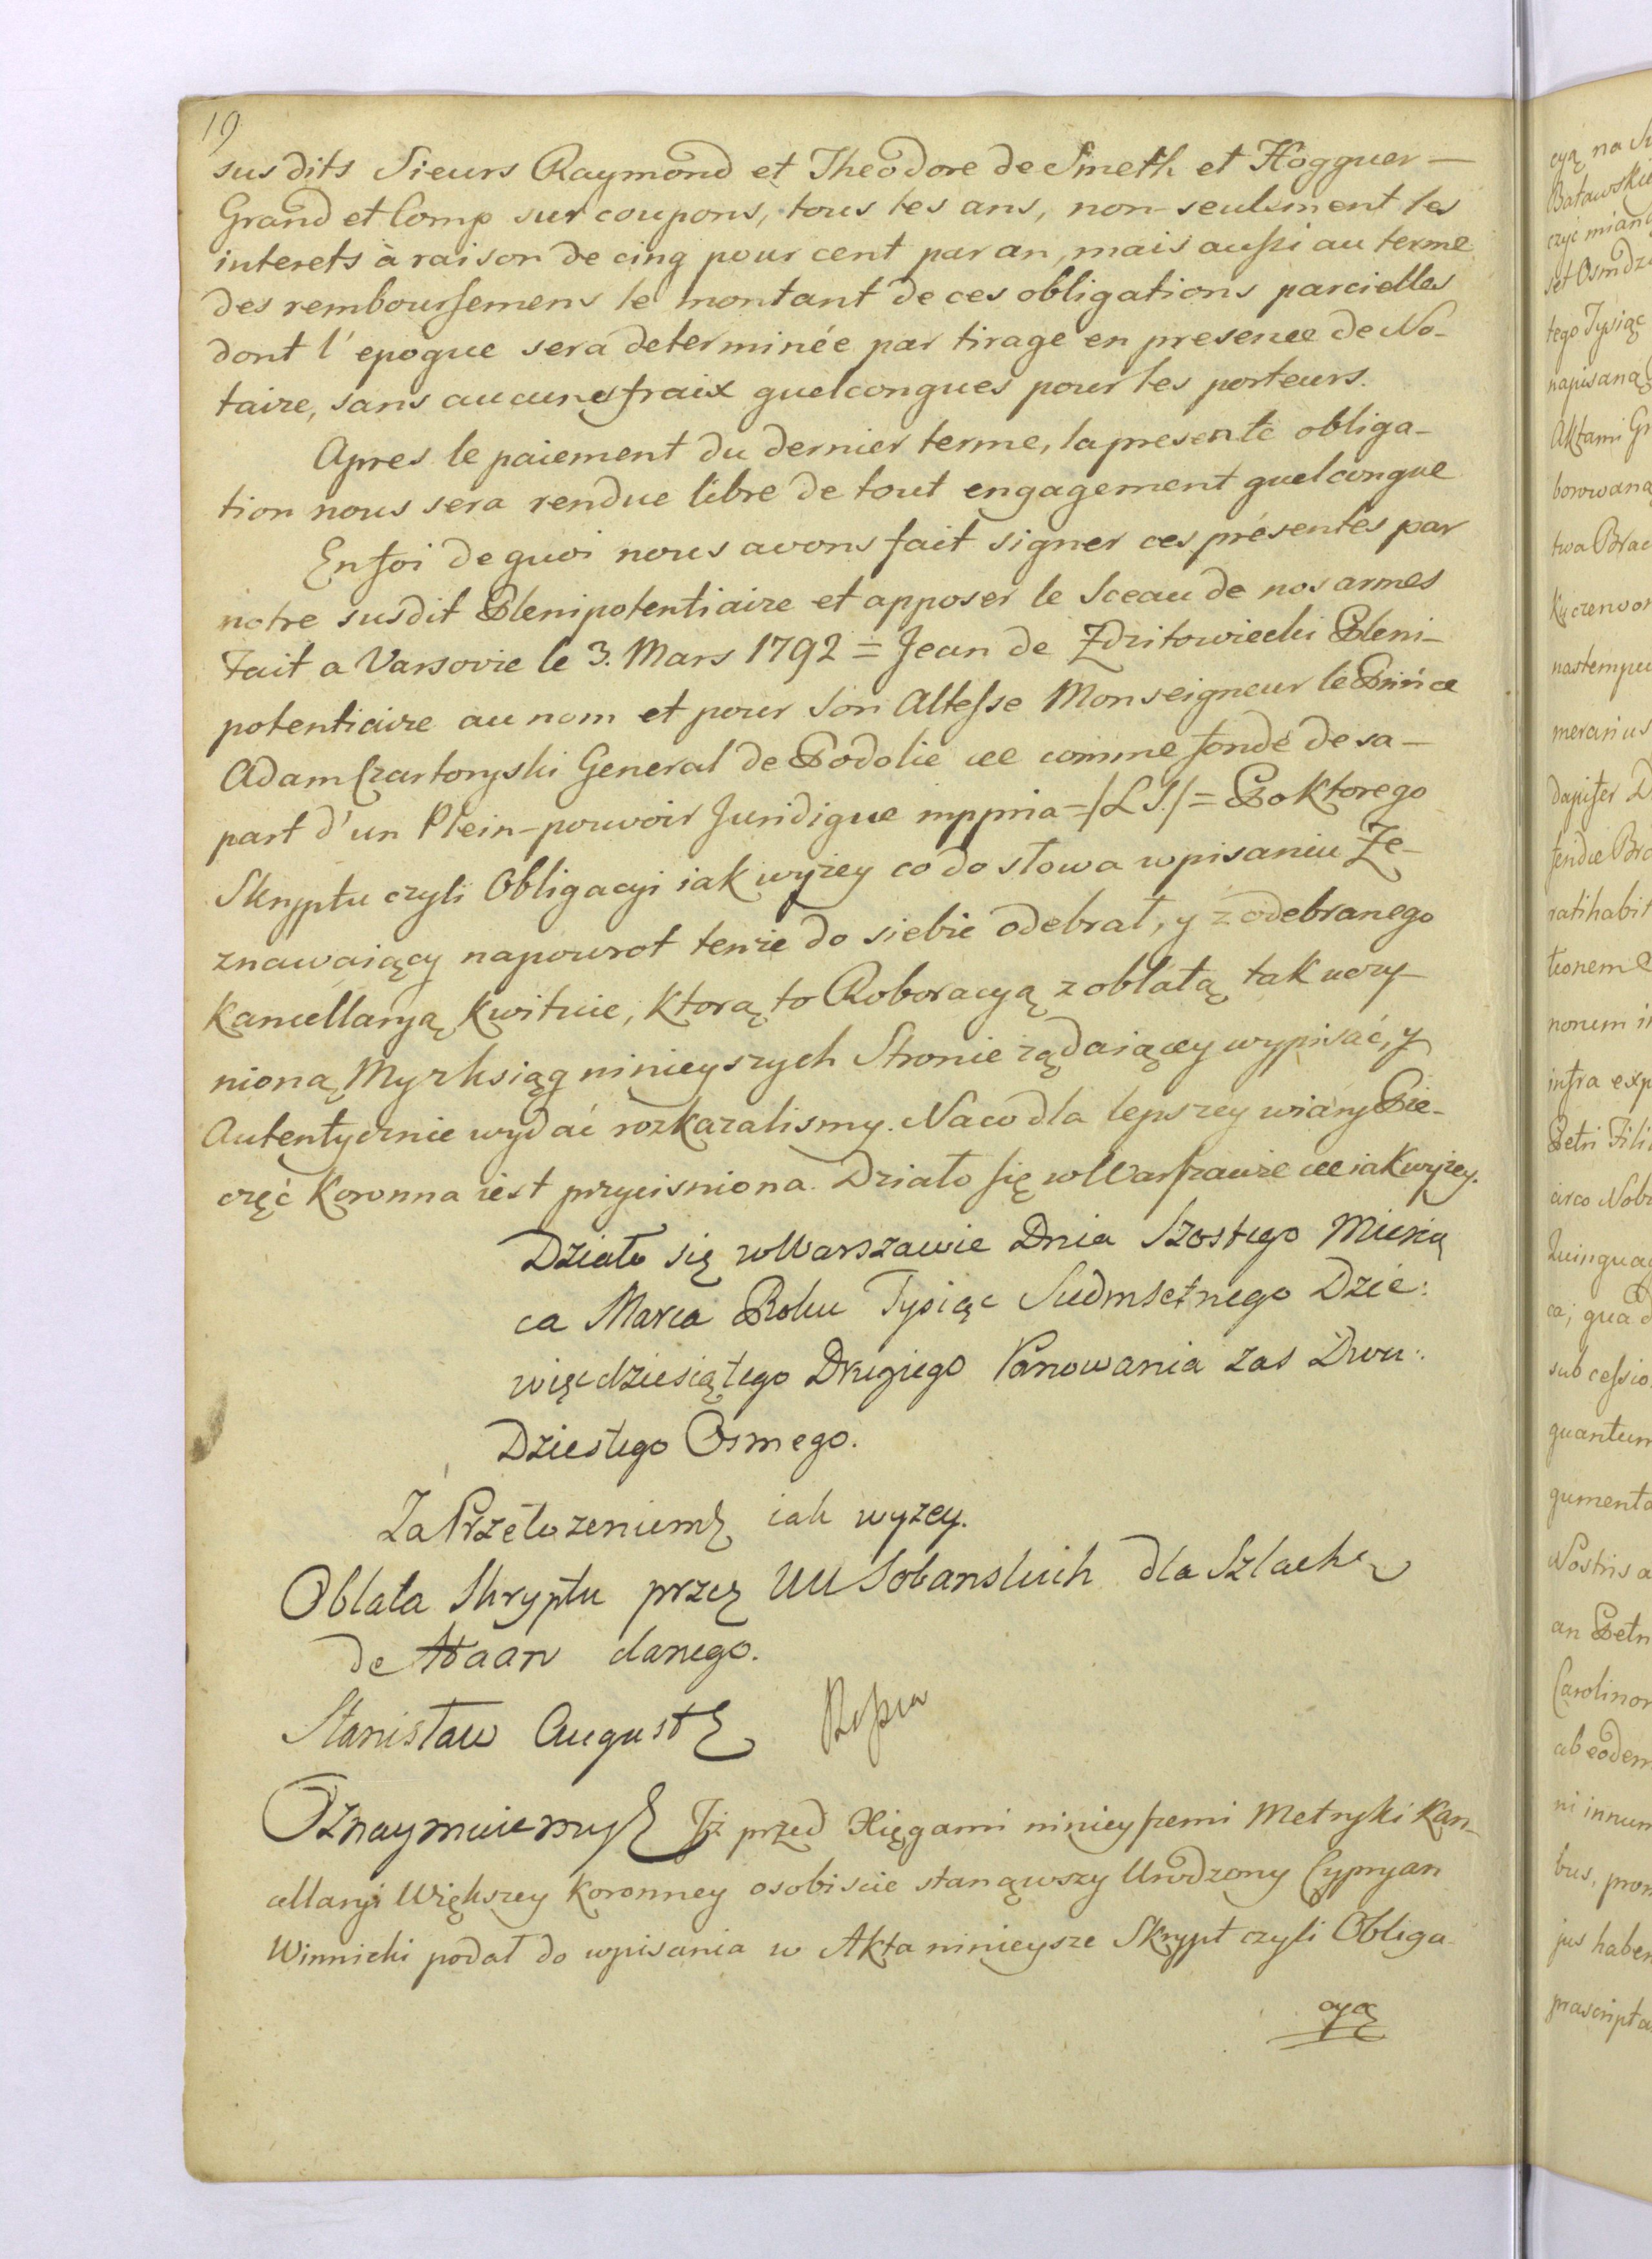 19
susdits Sieurs Raymond et Theodore de Smeth et Hogguer —
Grand et Comp sur coupons, tous les ans, non-seulement les
interets à raison de cinq pour cent par an, mais aussi au terme
des remboursemens le montant de ces obligations parcielles
dont l'epoque sera determinée par tirage en presence de No-
taire, sans aucuns fraix quelconques pour les porteurs.
Apres le paiement du dernier terme, la presente obliga-
tion nous sera rendue libre de tout engagement quelconque
En foi de quoi nous avons fait signer ces présentes par
notre susdit Plenipotentiaire et apposer le Sceau de nos armes
Fait a Varsovie le 3. Mars 1792 = Jean de Zdzitowiecki Pleni-
potentiaire au nom et pour Son Altesse Monseigneur le Prince
Adam Czartoryski General de Podolie ce comme fondé de sa —
part d'un Plein-pouvoir Juridique mppria =/LS./= Po ktorego
Skryptu czyli Obligacyi iak wyzey co do słowa wpisaniu Ze-
znawaiący napowrot tenże do siebie odebrał, y z odebranego
Kancellaryą kwituie, ktorą to Roboracyą z oblatą tak uczy-
nioną, My z ksiąg ninieyszych Stronie żądaiącey wypisać, y
Autentycznie wydać rozkazalismy. Na co dla lepszey wiary Pie-
częć Koronna iest przycisniona. Działo się w Warszawie ee iak wyżey.
Działo się w Warszawie Dnia Szostego Miesią
ca Marca Roku Tysiąc Siedmsetnego Dzie:
więcdziesiątego Drugiego Panowania zas Dwu:
Dziestego Osmego.
Za Przełozeniem iak wyzey.
Oblata Skryptu przez UU Sobanskich dla Szlach:
de Haan danego.
Stanisław August
Oznaymuiemy Iż przed Xięgami ninieyszemi Metryki Kan-
cellaryi Większey Koronney osobiscie stanąwszy Urodzony Cypryan
Winnicki podał do wpisania w Akta ninieysze Skrypt czyli Obliga-
cyą
cyą na
czyć mian
tego Tysiąc
napisaną
Aktami Gr
borowaną
twa Brac
nastempu
meranus
dapifer D
ratihabit
tionem
nonum i
infra exp
Petri Fili
circo Nob
ca; qua d
sub cessio
quantum
gumenta
Nostris a
an Petr
Carolinor
ab eodem
ni innum
bus, pron
jus haben
prascripta